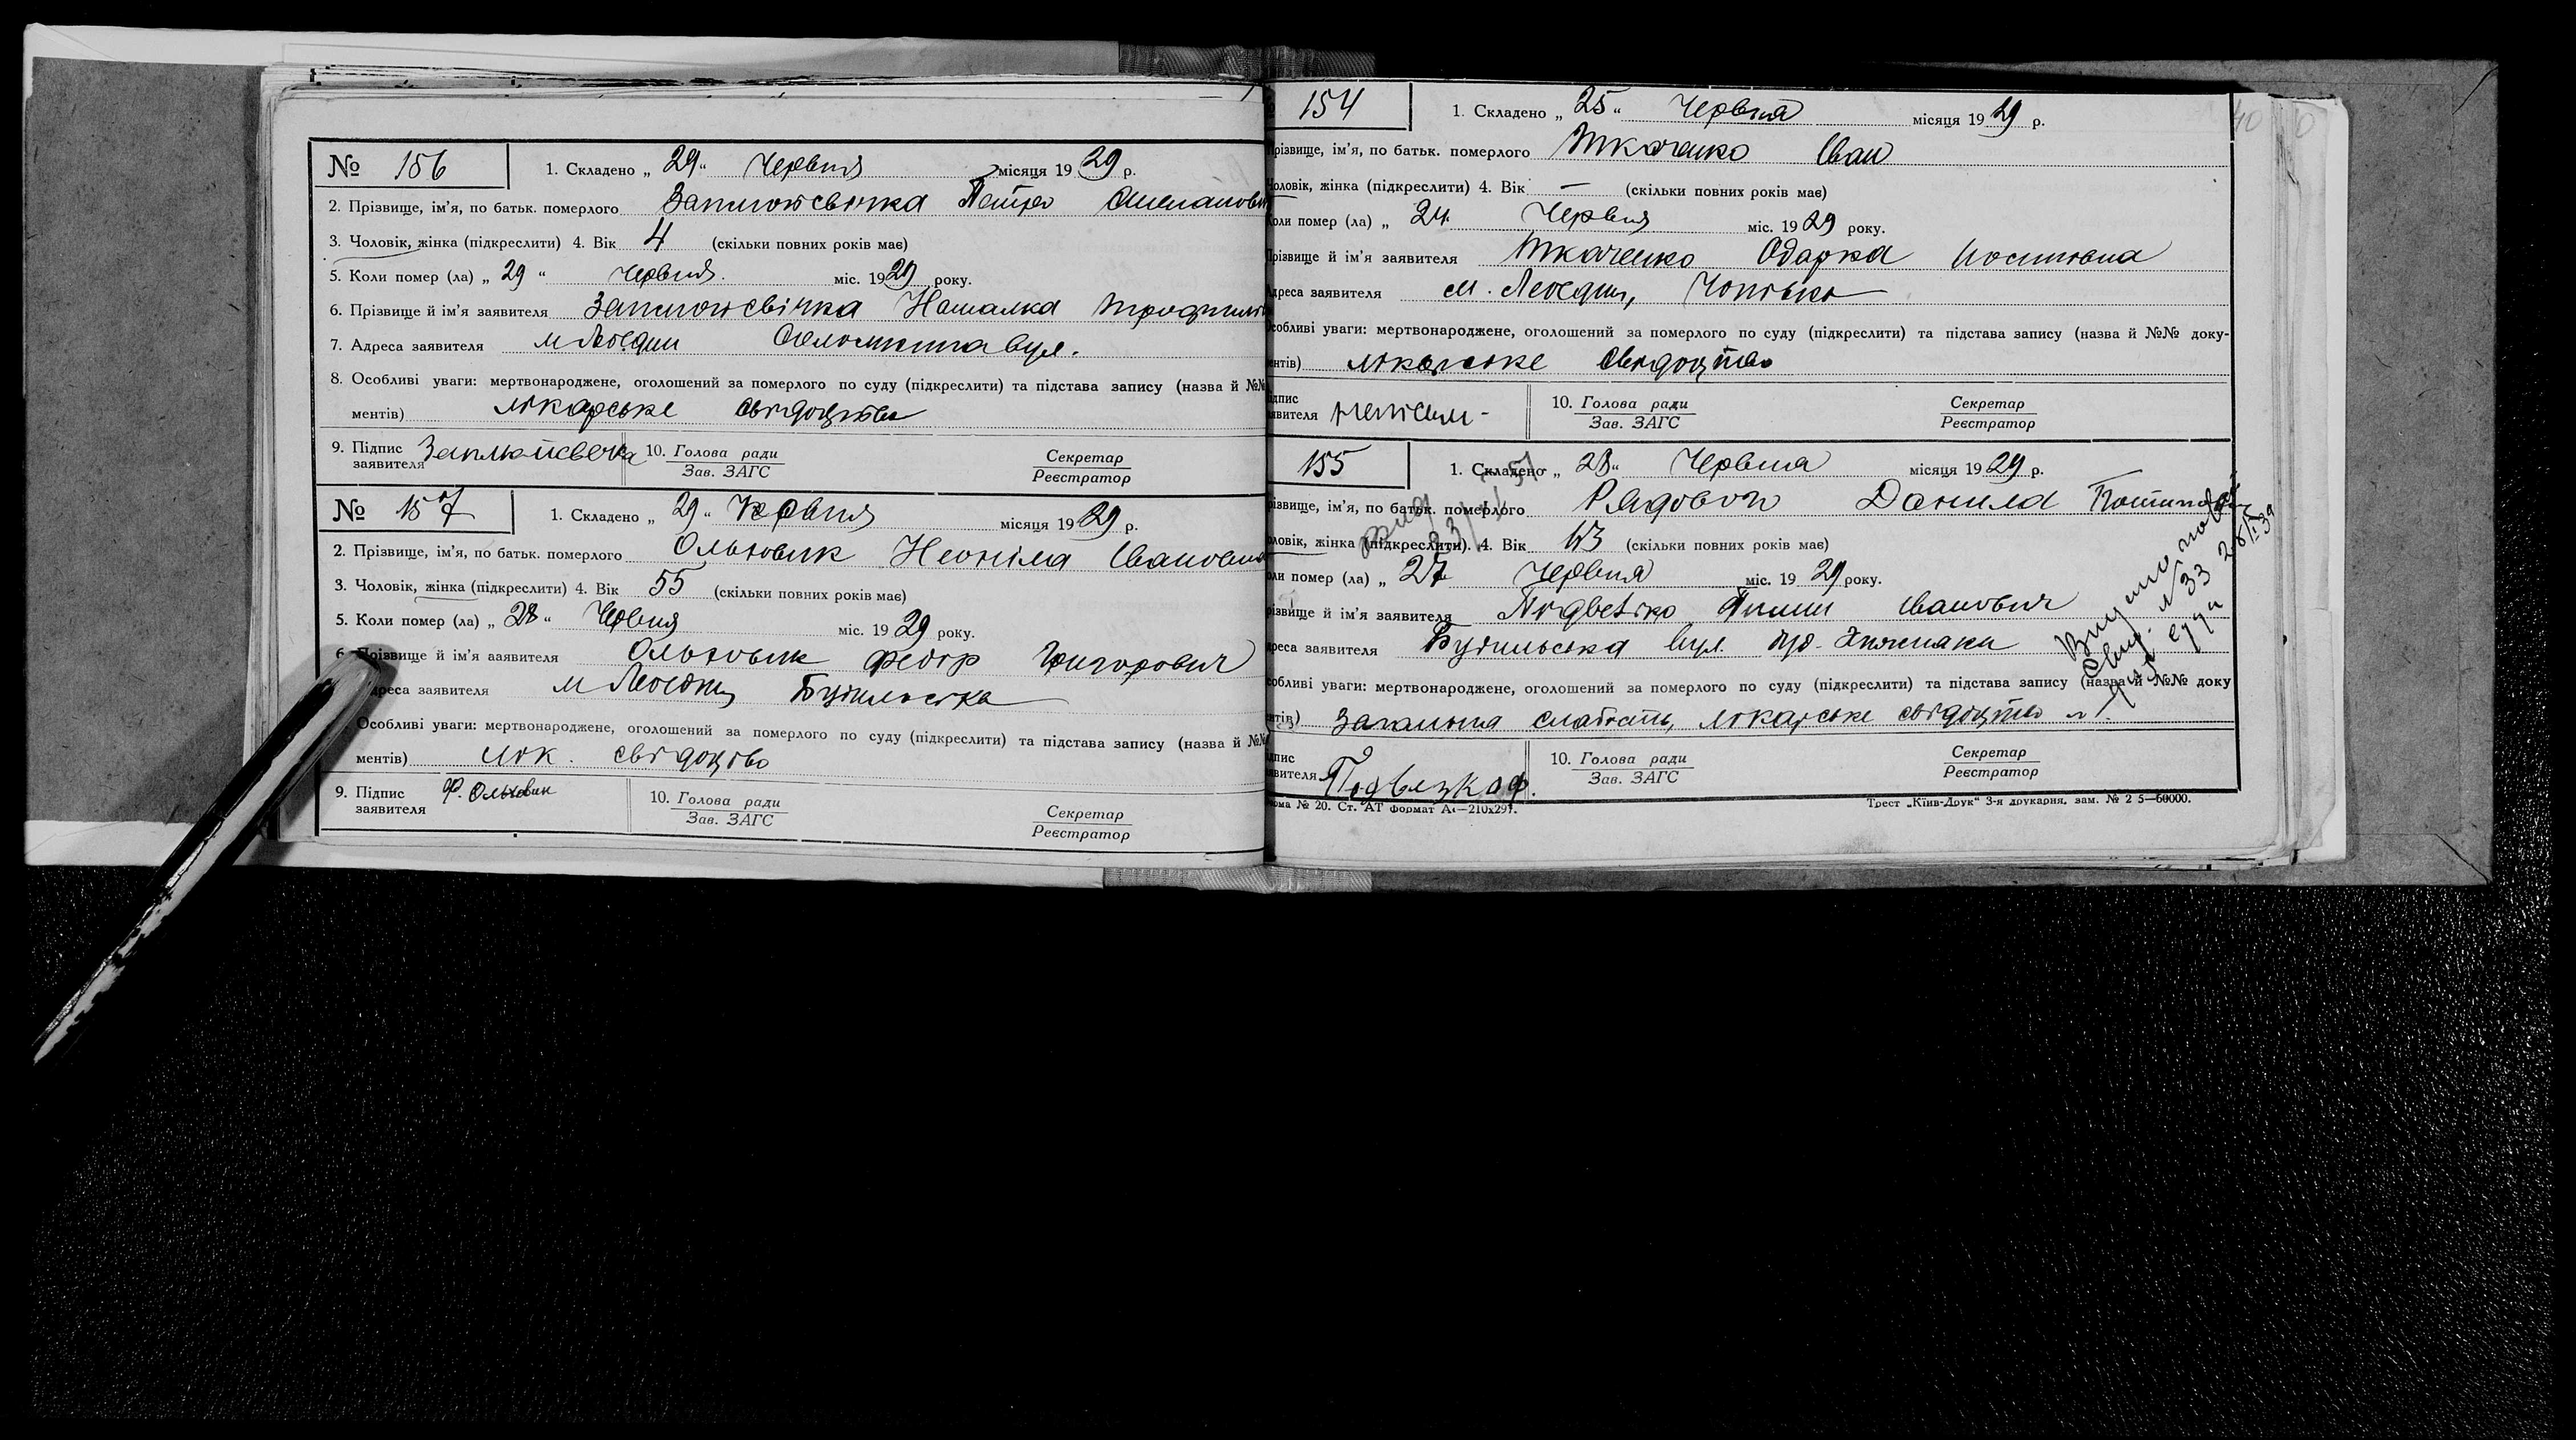 № 156
1. Складено „ 29 “ Червня місяця 19 29 р.
2. Прізвище, ім'я, по батьк. померлого Заплюйсвічка Петро
3. Чоловік, жінка (підкреслити) 4. Вік 4 (скільки повних років має)
5. Коли помер (ла) „ 29 “ Червня міс. 19 29 року.
6. Прізвище й ім'я заявителя Заплюйсвічка Наталка
7. Адреса заявителя м Лебедин вул.
8. Особливі уваги: мертвонароджене, оголошений за померлого по суду (підкреслити) та підстава запису (назва й №№
ментів) лікарське свідоцтво
9. Підпис заявителя 10. Голова ради Зав. ЗАГС Секретар Реєстратор
№ 157
1. Складено „ 29 “ Червня місяця 19 29 р.
2. Прізвище, ім'я, по батьк. померлого Ольховик Неоніла Івановна
3. Чоловік, жінка (підкреслити) 4. Вік 55 (скільки повних років має)
5. Коли помер (ла) „ 28 “ Червня міс. 19 29 року.
6. Прізвище й ім'я заявителя Ольховик Федір Григорович
Адреса заявителя м Лебедин
Особливі уваги: мертвонароджене, оголошений за померлого по суду (підкреслити) та підстава запису (назва й №№
ментів) лік. свідоцтво
9. Підпис заявителя Ф. Ольховик 10. Голова ради Зав. ЗАГС Секретар Реєстратор
154
1. Складено „ 25 “ Червня місяця 19 29 р.
Прізвище, ім'я, по батьк. померлого Ткаченко Іван
Чоловік, жінка (підкреслити) 4. Вік — (скільки повних років має)
Коли помер (ла) „ 24 Червня міс. 19 29 року.
Прізвище й ім'я заявителя Ткаченко Одарка
Адреса заявителя м. Лебедин,
Особливі уваги: мертвонароджене, оголошений за померлого по суду (підкреслити) та підстава запису (назва й №№ доку-
ментів) лікарське свідоцтво
Підпис заявителя неписьм- 10. Голова ради Зав. ЗАГС Секретар Реєстратор
155
1. Складено „ 28 “ Червня місяця 19 29 р.
Прізвище, ім'я, по батьк. померлого Данила
Чоловік, жінка (підкреслити). 4. Вік (скільки повних років має)
Коли помер (ла) „ 27 Червня міс. 19 29 року.
Прізвище й ім'я заявителя Іванович
Адреса заявителя вул.
Особливі уваги: мертвонароджене, оголошений за померлого по суду (підкреслити) та підстава запису (назва й №№ доку
ментів) Загальна слабость, лікарське свідоцтво
Підпис заявителя 10. Голова ради Зав. ЗАГС Секретар Реєстратор
Форма № 20. Ст. АТ формат А₄—210x297. Трест „Київ-Друк“ 3-я друкарня. зам. № 2 5—50000.